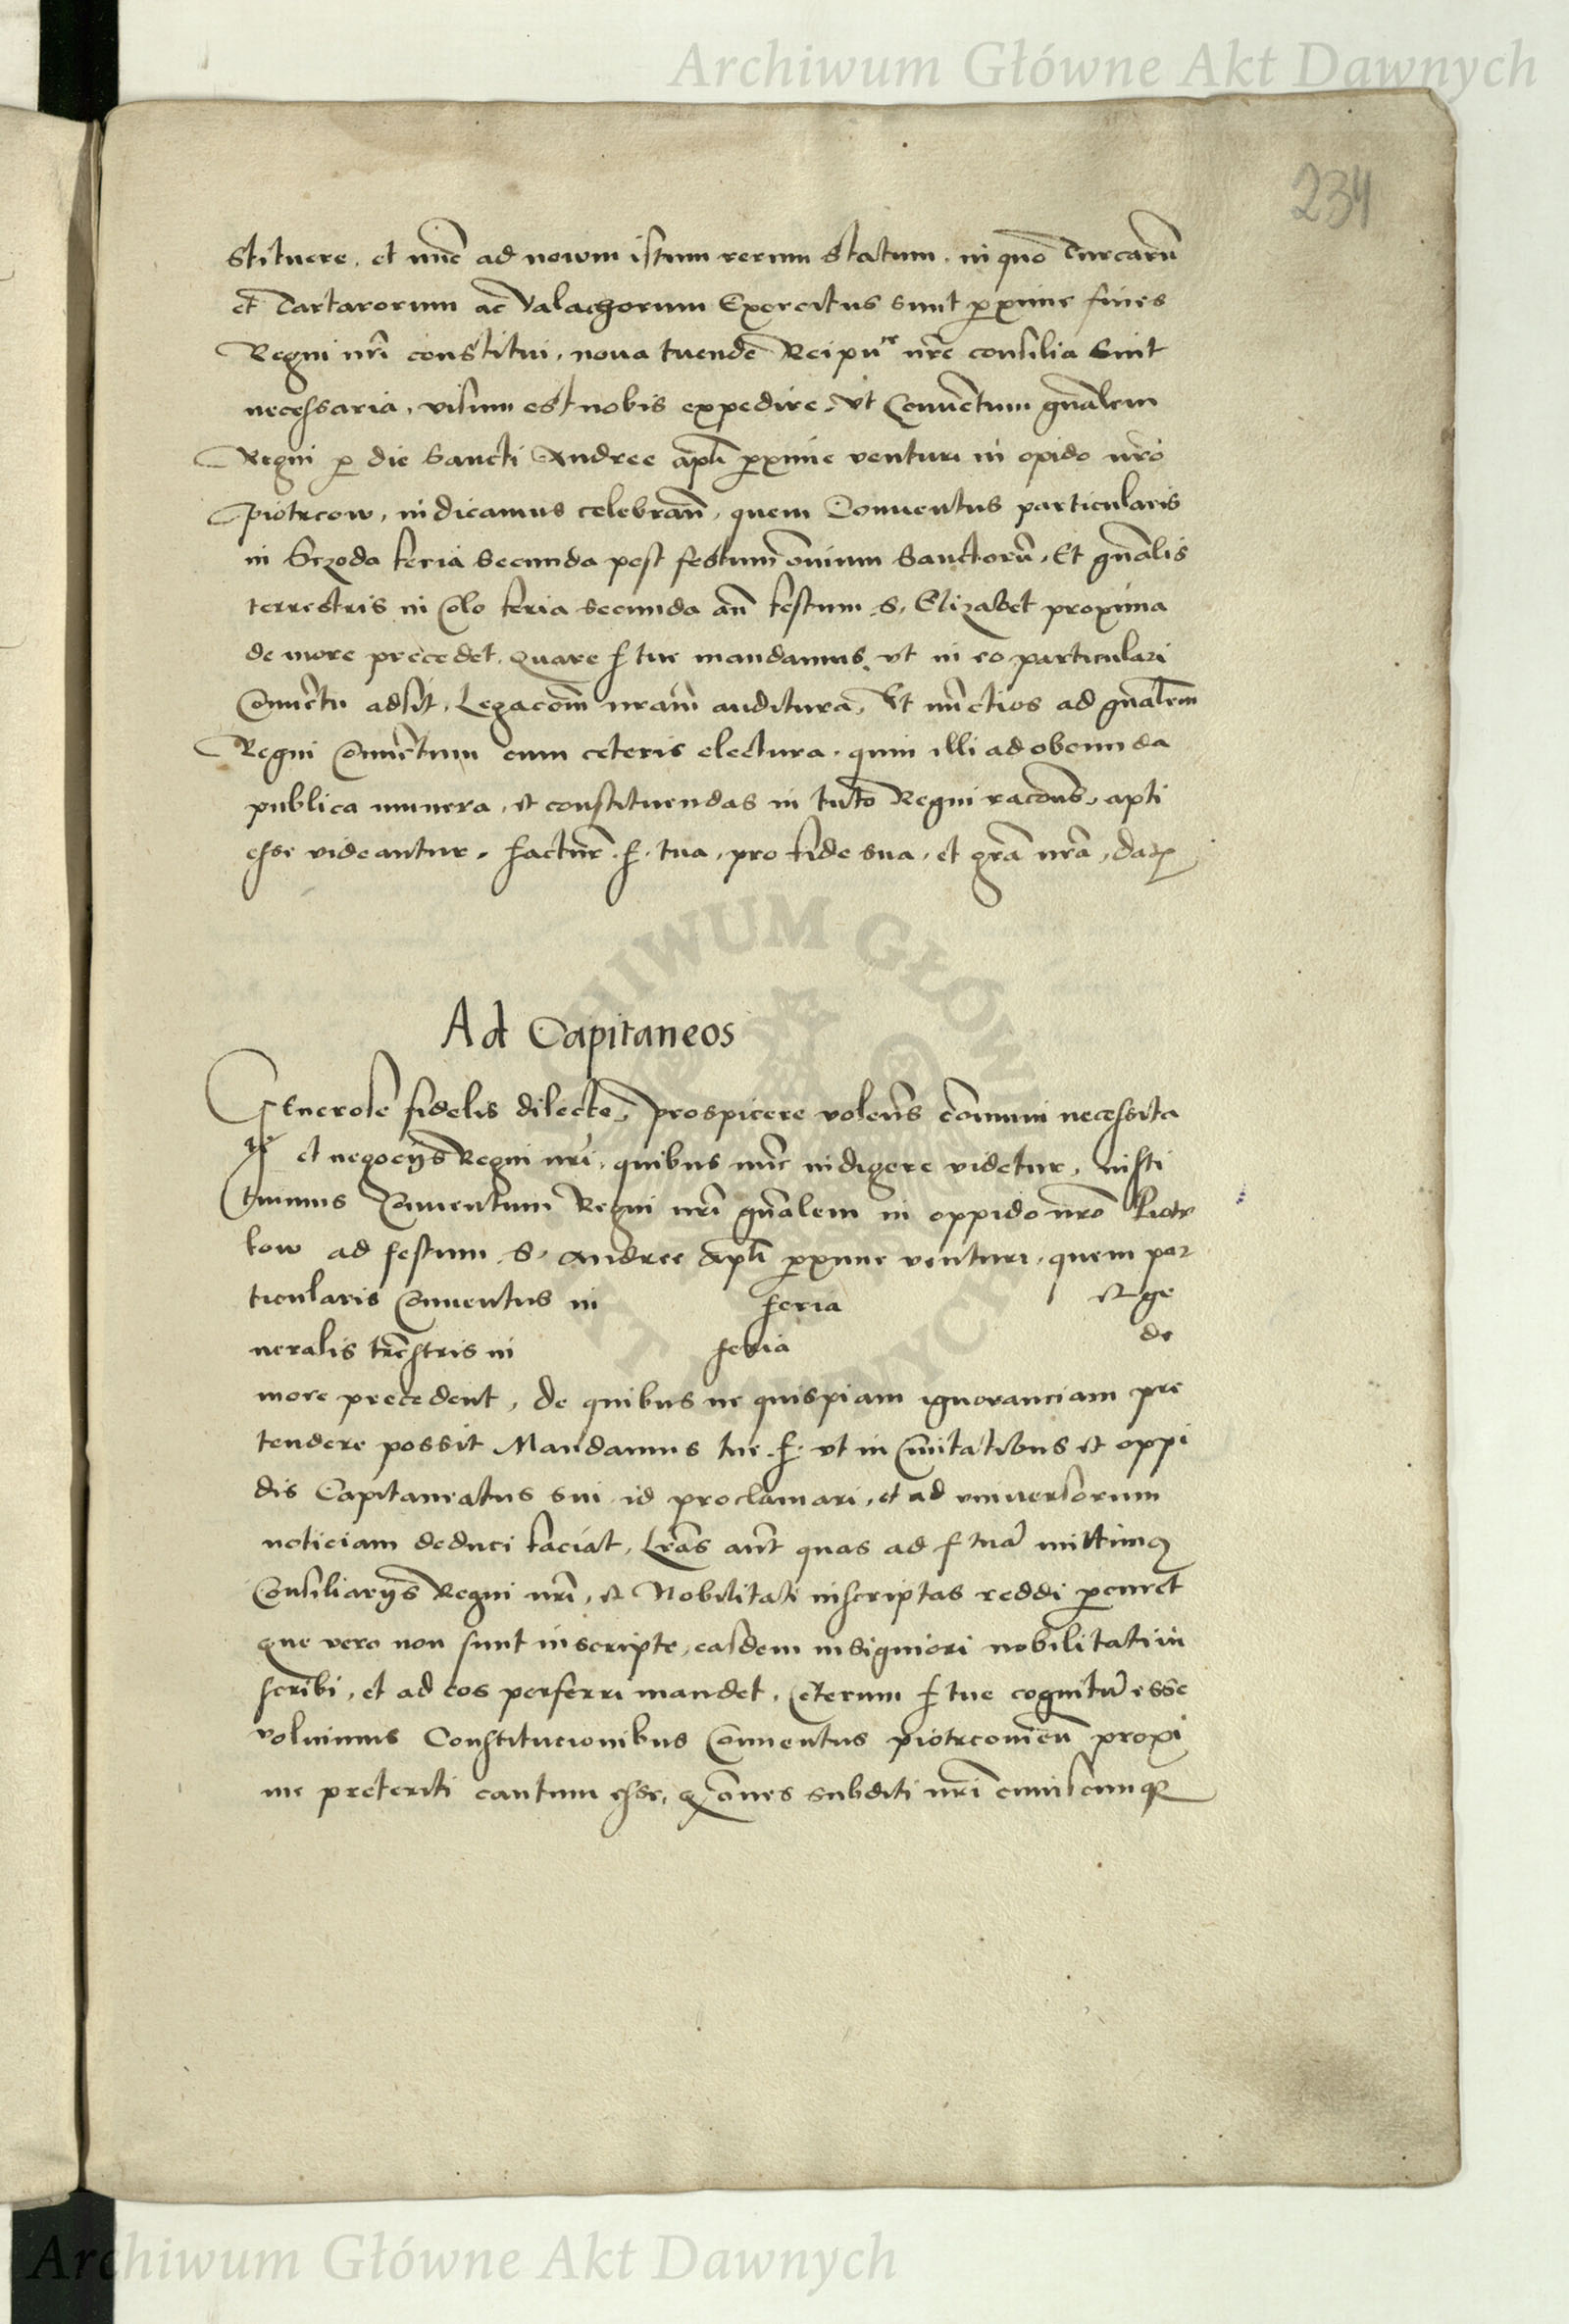 Archiwum Główne Akt Dawnych
234
stituere, et nūc ad nouum istum rerum statum, in quo Turcarū
et Tartarorum ac Valachorum Exercitus sunt ꝓxime fines
Regni nrī constitui, noua tuende Reipuce nrē consilia sint
necessaria, visum est nobis expedire, vt Conuētum gnālem
Regni ꝓ die Sancti Andree apłi ꝓxime venturi in opido nrō
Piotrcow, indicamus celebran̄, quem Conuentus particularis
in Srzoda feria secunda post festum om̄ium Sanctorū, Et gnālis
terrestris in Colo feria secunda an̄ festum S. Elizabet proxima
de more precedet. Quare f tue mandamus, vt in eo particulari
Conuētu adsit, Legacōm nrām auditura, Et nūctios ad gnālem
Regni Conuētum cum ceteris electura, quin illi ad obeunda
publica munera, et constituendas in tuto Regni racōnes, apti
esse videantur. factur. f. tua, pro fide sua, et grā nrā, datꝭ
Ad Capitaneos
Generose fidelis dilecte, prospicere volen̄s com̄uni necessita
ti et negocijs Regni nrī, quibus nūc indigere videtur, insti
tuimus Conuentum Regni nrī gnālem in oppido nrō Piotr
kow ad festum S. Andree Apłi ꝓxime venturi, quem par
ticularis Conuentus in feria et ge
neralis trēstris in feria de
more precedent, de quibus ne quispiam ignoranciam pre
tendere possit Mandamus tue f. vt in Ciuitatibus et oppi
dis Capitaneatus sui id proclamari, et ad vniuersorum
noticiam deduci faciat, Lrās aūt quas ad f tuā mittimꝰ
Consiliarijs Regni nrī, et Nobilitati inscriptas reddi ꝓcuret
que vero non sunt inscripte, easdem insigniori nobilitati in
scribi, et ad eos perferri mandet, Ceterum f tue cognitū esse
volumus Constitucionibus Conuentus piotrcouien̄ proxi
me preteriti cautum esse, ꝙ om̄es subditi nrī cuiuscunqꝫ
Archiwum Główne Akt Dawnych